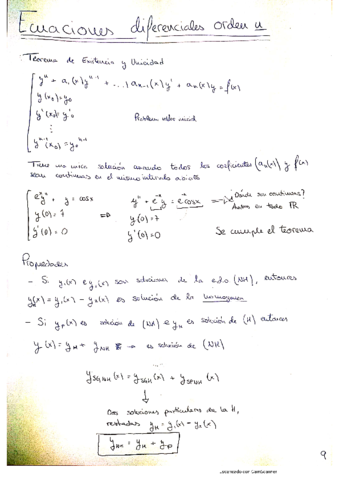 Ecuaciones diferenciales orden n
Teorema de Existencia y Unicidad
yⁿ + a₁(x)yⁿ⁻¹ + ...) aₙ₋₁(x)y' + aₙ(x)y = f(x)
y(x₀) = y₀
y'(x₀) y'₀
Problema valor inicial
⋮
yⁿ⁻¹(x₀) = y₀ⁿ⁻¹
Tiene una única solución cuando todos los coeficientes (aₙ(x)) y f(x)
sean continuas en el mismo intervalo abierto
eˣy'' + y = cosx
y(0) = 7
y'(0) = 0
⇔
y'' + e⁻ˣy = e⁻ˣcosx
y(0) = 7
y'(0) = 0
¿Dónde son continuas?
Ambas en todo ℝ
Se cumple el teorema
Propiedades
- Si y₁(x) e y₂(x) son soluciones de la edo (NH), entonces
yₕ(x) = y₁(x) - y₂(x) es solución de la homogénea
- Si yₚ(x) es solución de (NH) e yₕ es solución de (H) entonces
y(x) = yH + yNH → es solución de (NH)
ySGNH(x) = ySGH(x) + ySPNH(x)
↓
Dos soluciones particulares en la H,
restadas y₁(x) - y₂(x)
yNH = yH + yp
9
Escaneado con CamScanner